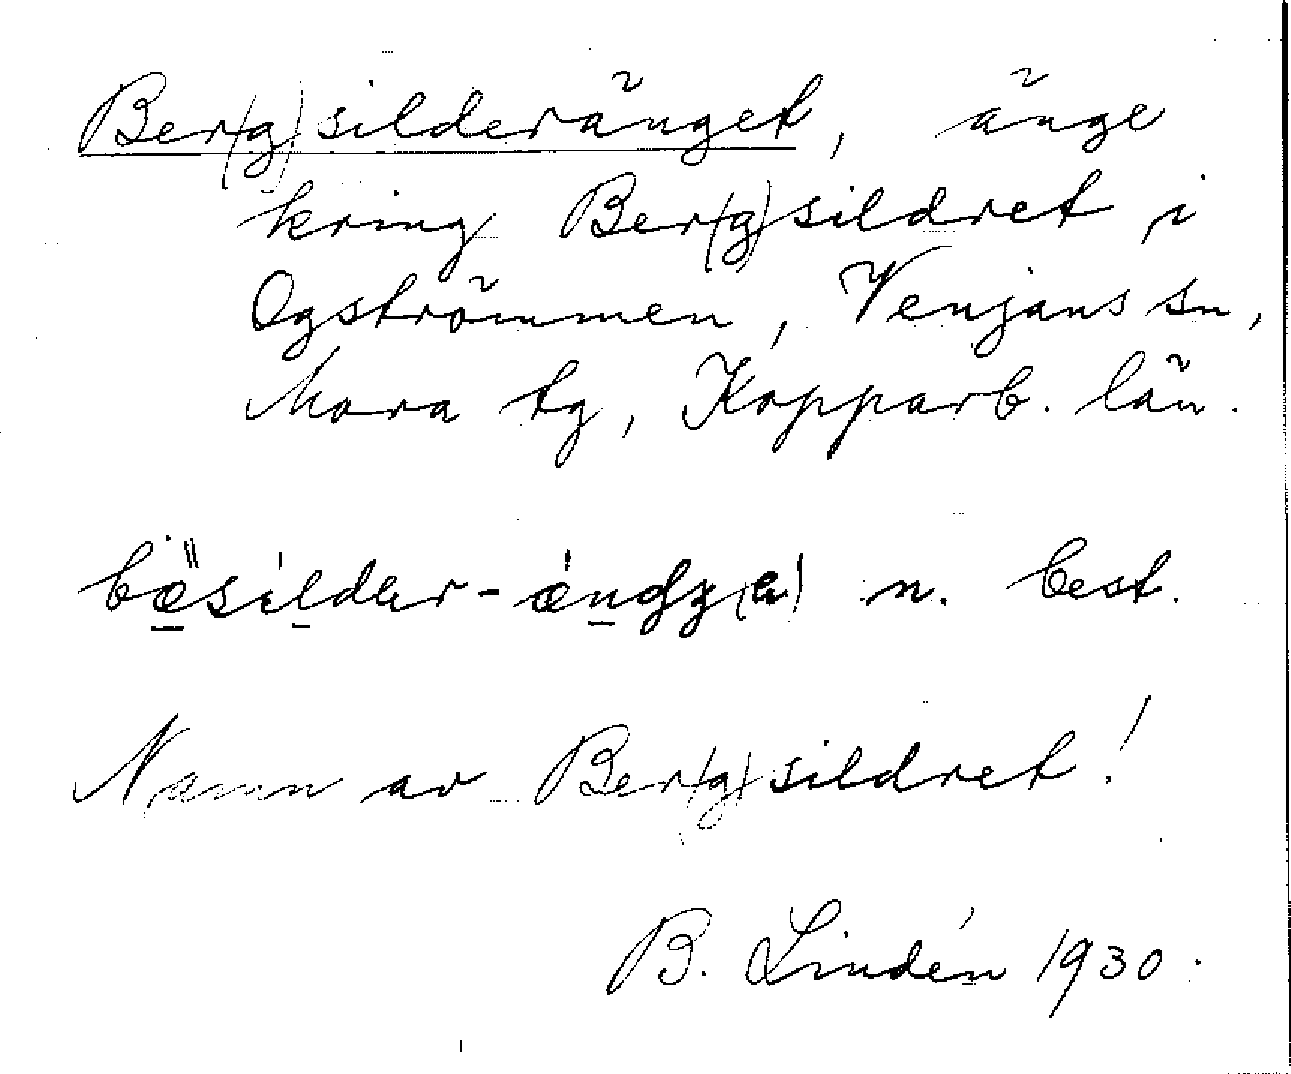 Ber(g)silderänget, änge
kring Ber(g)sildret i
Ogströmmen, Venjans sn,
Mora tg, Kopparb. län.
n. best.
Namn av Ber(g)sildret!
B. Lindén 1930.